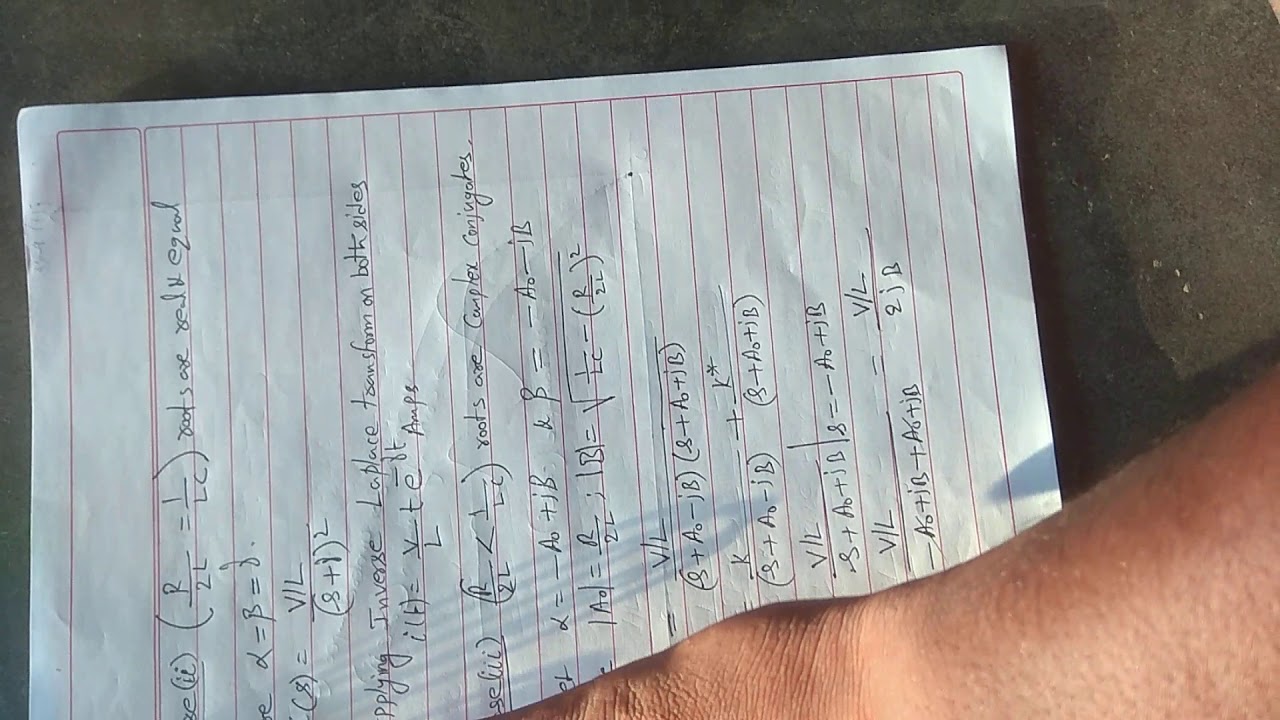 se(ii) (R/2L = 1/LC) roots are real & equal
α = β = γ.
(s) = V/L / (s+γ)²
pplying Inverse Laplace transform on both sides
i(t) = V/L t e^-γt Amps
se(iii) (R/2L < 1/LC) roots are Complex Conjugates.
et α = -A₀+jB. & β = -A₀-jB
|A₀| = R/2L ; |B| = √(1/LC - (R/2L)²)
= V/L / (s+A₀-jB)(s+A₀+jB)
= K/(s+A₀-jB) + K*/(s+A₀+jB)
V/L / s+A₀+jB | s=-A₀+jB
V/L / -A₀+jB+A₀+jB = V/L / 2jB